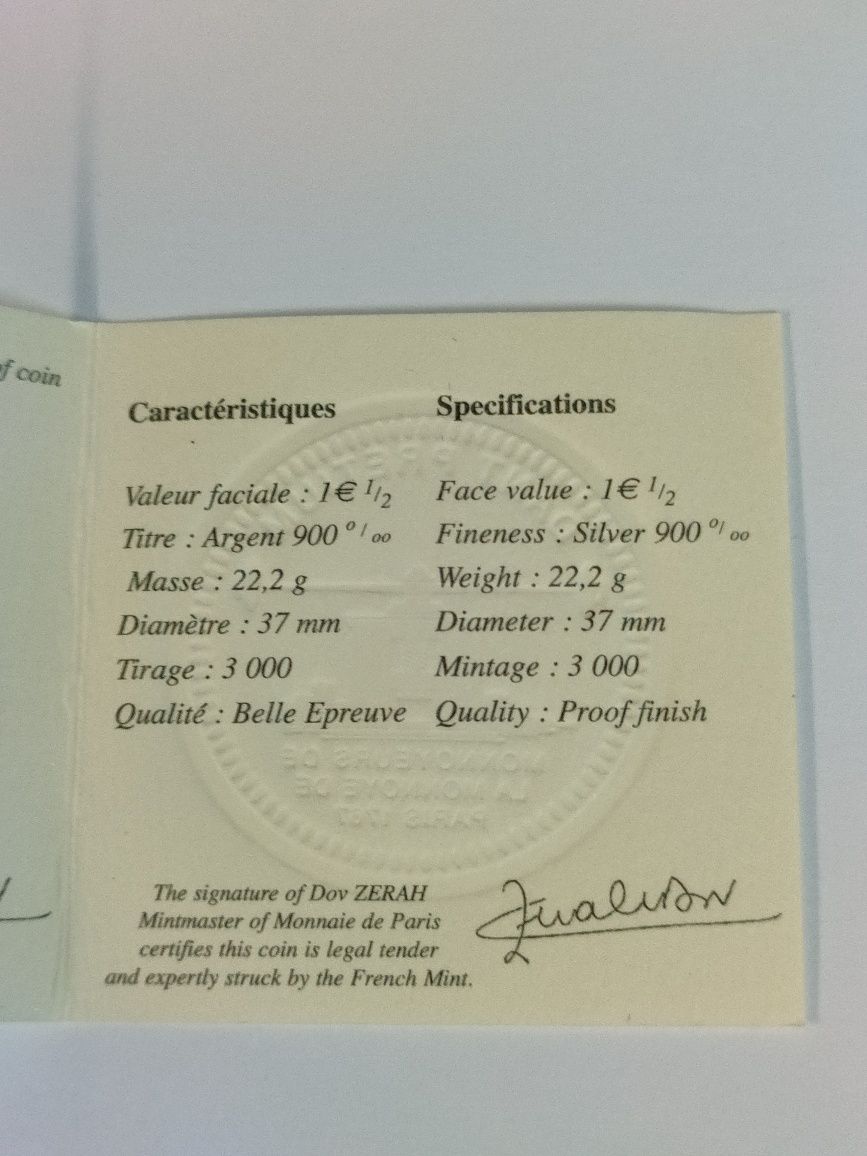 f coin
Caractéristiques
Valeur faciale : 1€ 1/2
Titre : Argent 900 °/oo
Masse : 22,2 g
Diamètre : 37 mm
Tirage : 3 000
Qualité : Belle Epreuve
Specifications
Face value : 1€ 1/2
Fineness : Silver 900 °/oo
Weight : 22,2 g
Diameter : 37 mm
Mintage : 3 000
Quality : Proof finish
The signature of Dov ZERAH
Mintmaster of Monnaie de Paris
certifies this coin is legal tender
and expertly struck by the French Mint.